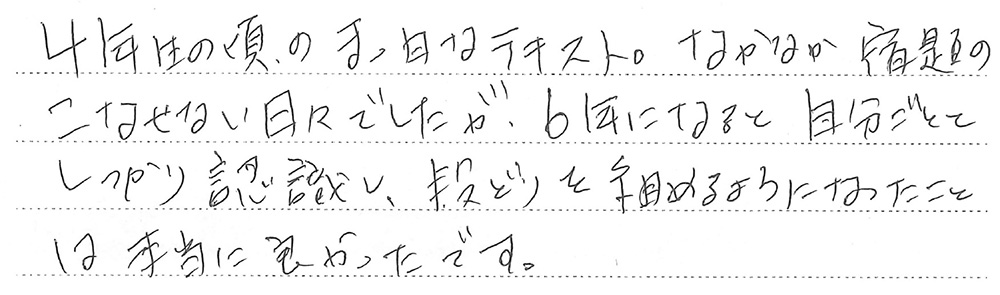 4年生の頃、のまっ白なテキスト。なかなか宿題の
こなせない日々でしたが、6年になると自分ごとと
しっかり認識し、段どりを組めるようになったこと
は本当に良かったです。